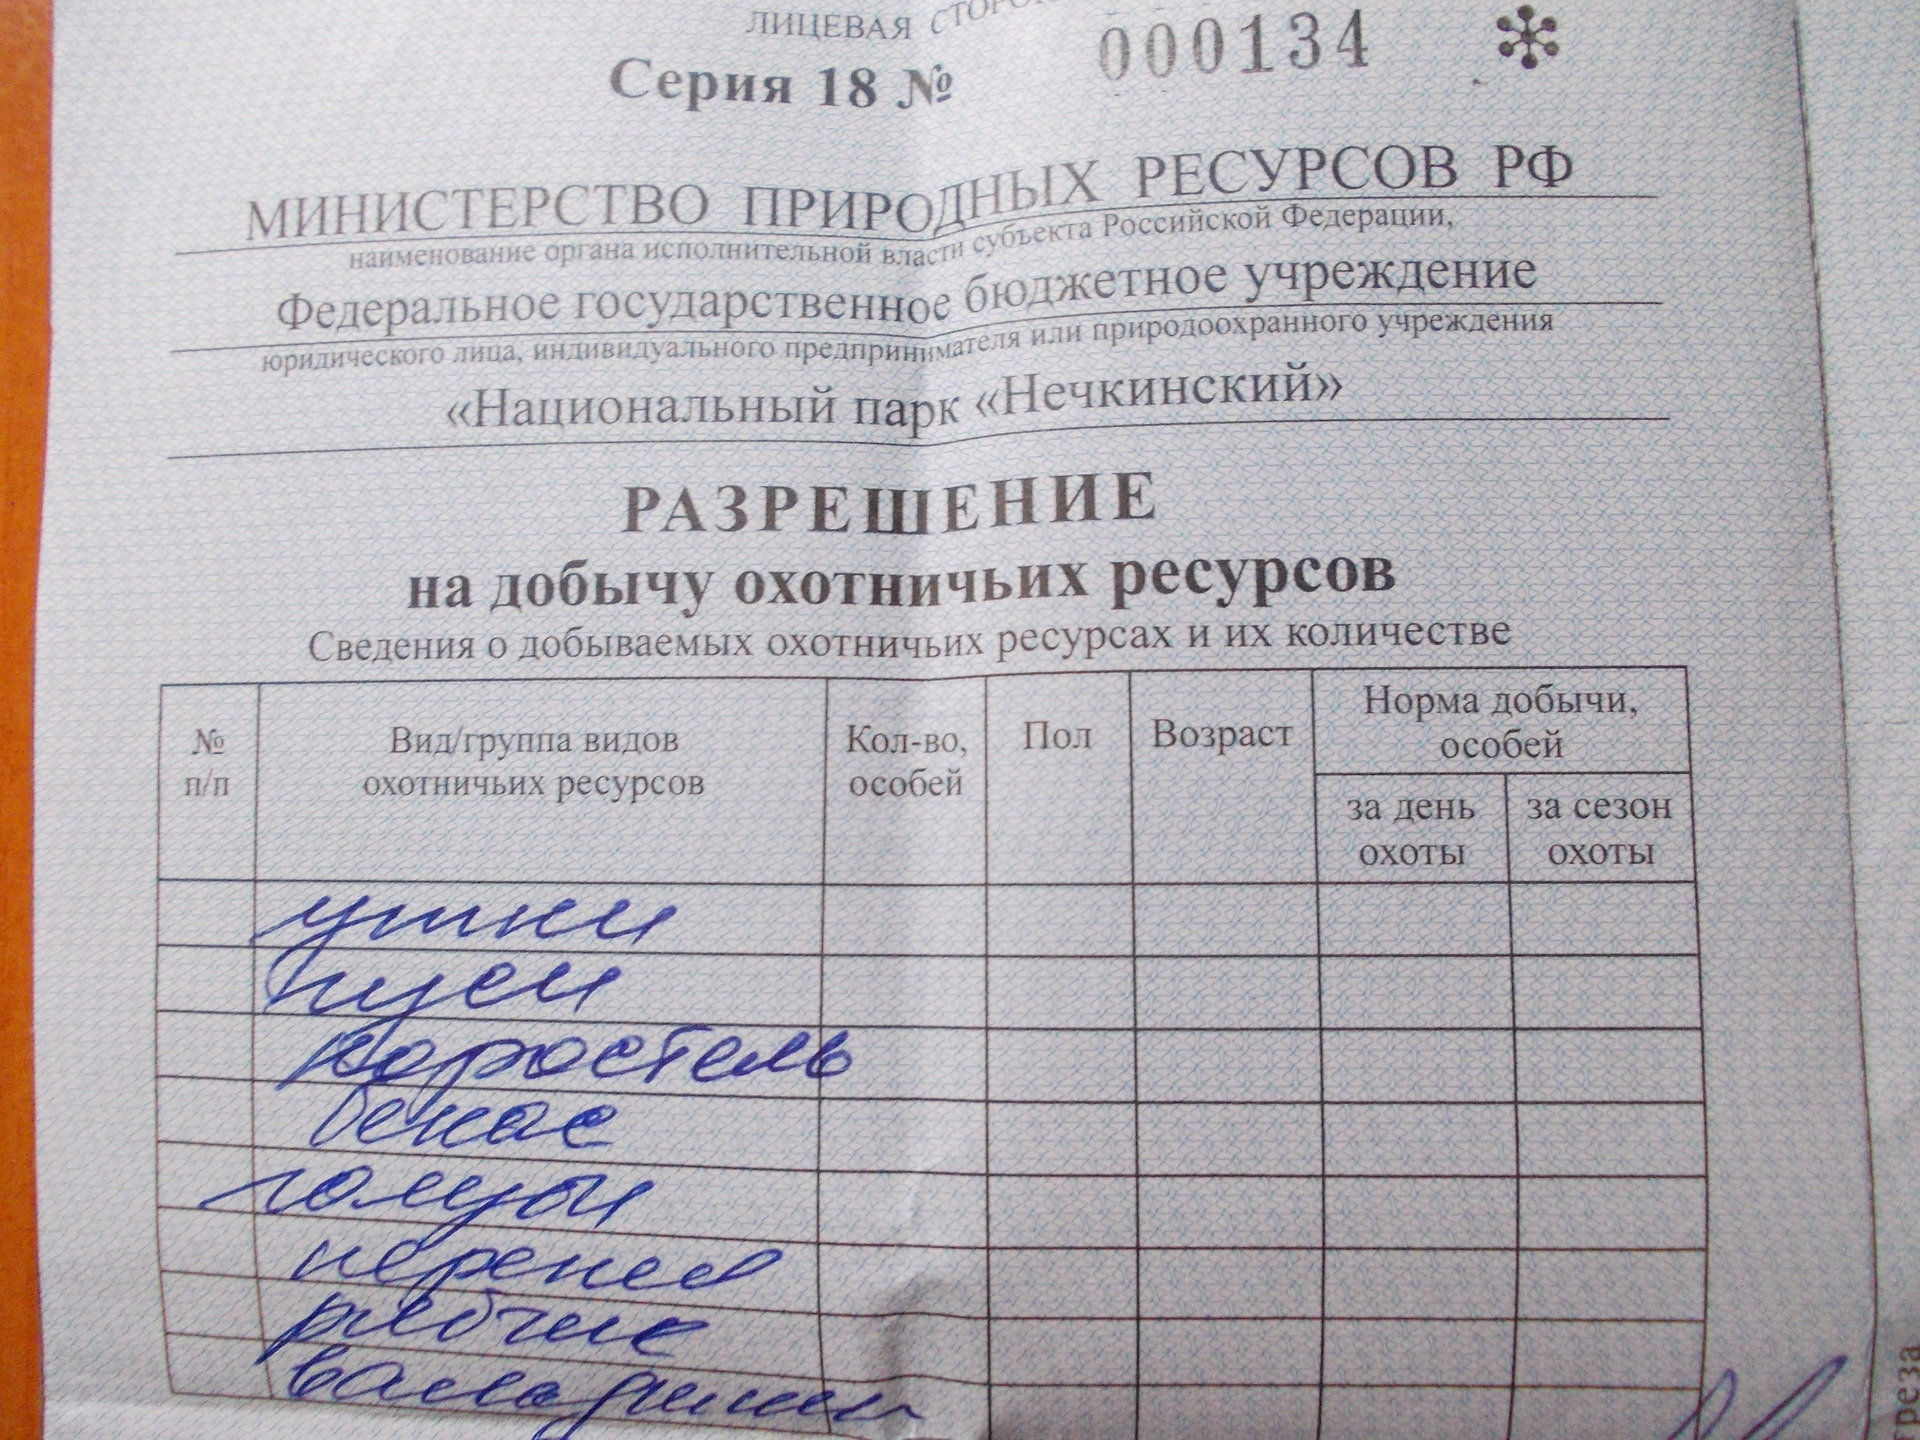 ЛИЦЕВАЯ СТОРОН
Серия 18 № 000134
МИНИСТЕРСТВО ПРИРОДНЫХ РЕСУРСОВ РФ
наименование органа исполнительной власти субъекта Российской Федерации,
Федеральное государственное бюджетное учреждение
юридического лица, индивидуального предпринимателя или природоохранного учреждения
«Национальный парк «Нечкинский»
РАЗРЕШЕНИЕ
на добычу охотничьих ресурсов
Сведения о добываемых охотничьих ресурсах и их количестве
№ п/п
Вид/группа видов охотничьих ресурсов
Кол-во, особей
Пол
Возраст
Норма добычи, особей
за день охоты
за сезон охоты
утки
гуси
коростель
бекас
голуби
перепел
рябчик
вальдшнеп
треза